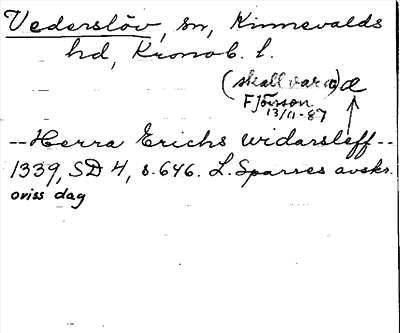 Vederslöv, sn, Kinnevalds
hd, Kronob. l.
(skall vara) æ
F Jönsson
13/11-87
--Herra Erichs widarsleff--
1339, SD 4, s. 646. L. Sparres avskr.
oviss dag